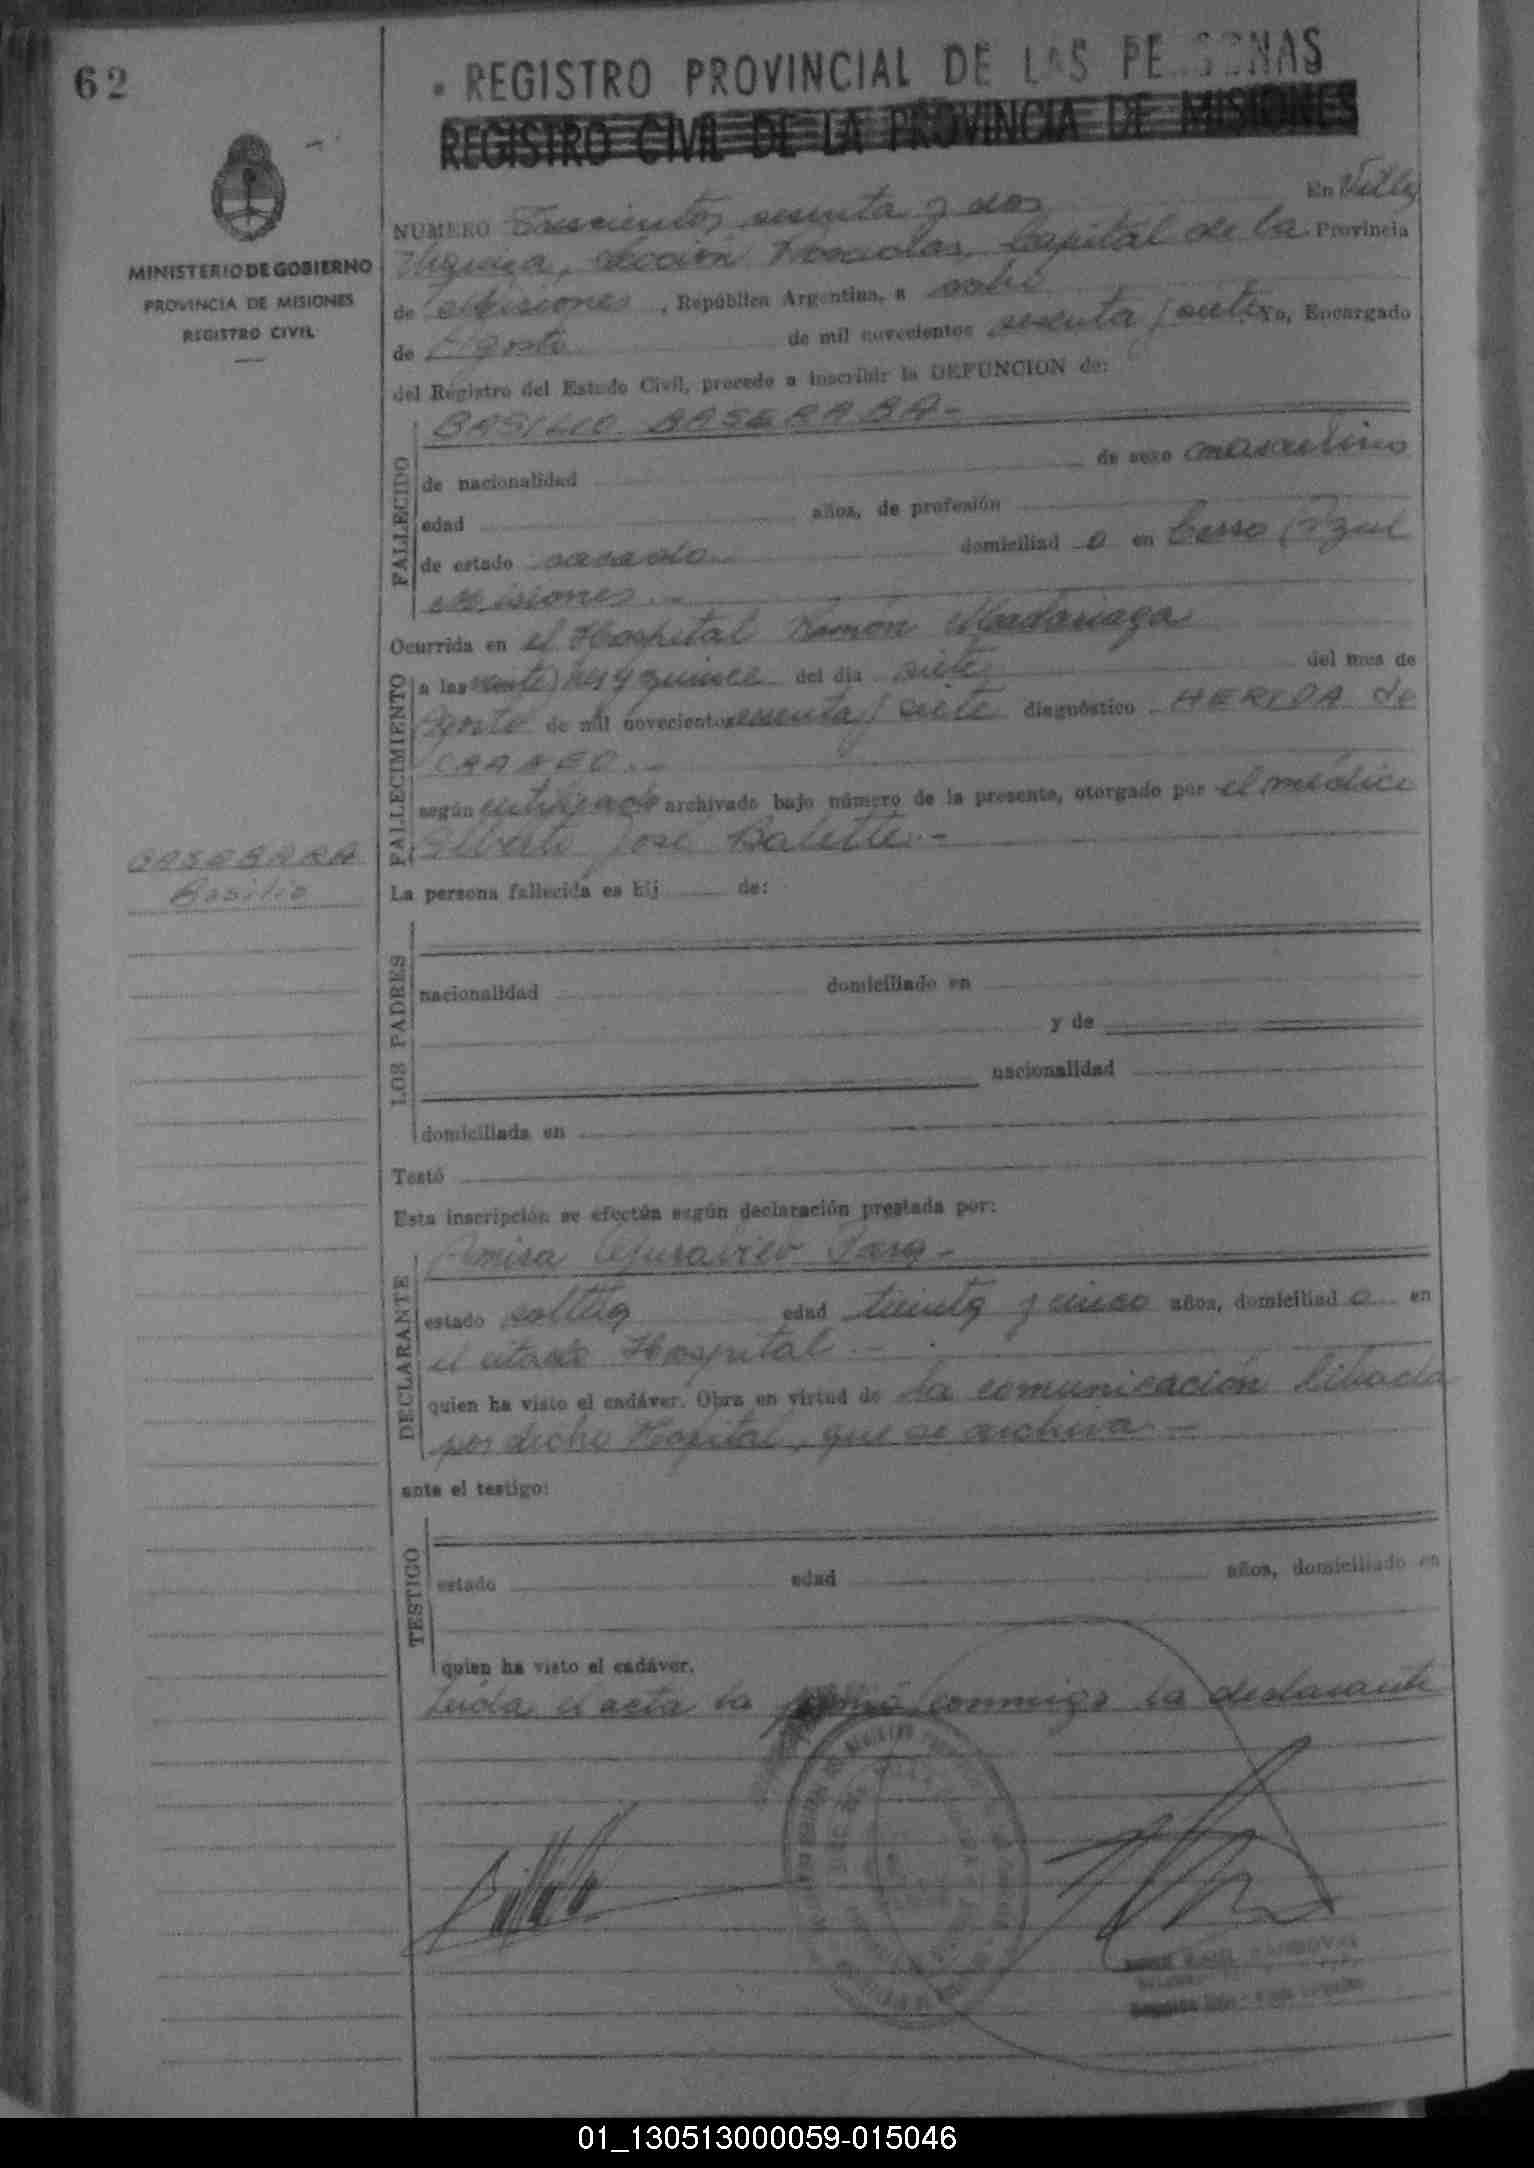 62
REGISTRO PROVINCIAL DE LAS PE SONAS
REGISTRO CIVIL DE LA PROVINCIA DE MISIONES
MINISTERIO DE GOBIERNO
PROVINCIA DE MISIONES
REGISTRO CIVIL
NUMERO Trescientos sesenta y dos En Villa
Urquiza, Sección Posadas, Capital de la Provincia
de Misiones, República Argentina, a ocho
de Agosto de mil novecientos sesenta y siete Yo, Encargado
del Registro del Estado Civil, procedo a inscribir la DEFUNCION de:
FALLECIDO
BASILIO BASERABA-
de nacionalidad de sexo masculino
edad años, de profesión
de estado casado domiciliad o en Cerro Azul
Misiones.-
Ocurrida en el Hospital Ramón Madariaga
FALLECIMIENTO
a las veinte y quince del dia siete del mes de
Agosto de mil novecientos sesenta y siete diagnóstico HERIDA de
CRANEO.-
según certificado archivado bajo número de la presente, otorgado por el médico
Alberto José Balette.-
BASABARA
Basilio
La persona fallecida es hij de:
LOS PADRES
nacionalidad domiciliado en
y de
nacionalidad
domiciliada en
Testó
Esta inscripción se efectúa según declaración prestada por:
DECLARANTE
Ramisa
estado soltera edad treinta y cinco años, domiciliad o en
el citado Hospital.-
quien ha visto el cadáver. Obra en virtud de la comunicación librada
por dicho Hospital, que se archiva.-
ante el testigo:
TESTIGO
estado edad años, domiciliado en
quien ha visto el cadáver.
Leida el acta la conmigo la declarante
01_130513000059-015046